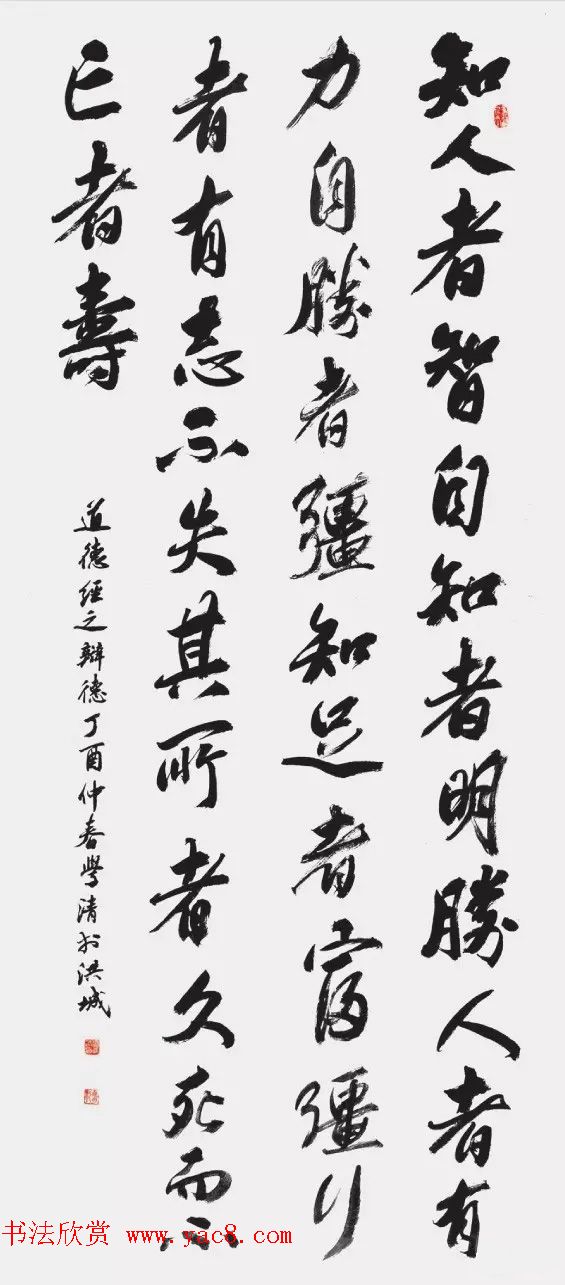 知人者智自知者明勝人者有
力自勝者彊知足者富彊行
者有志不失其所者久死而不
亡者壽
道德經之辯德丁酉仲春學清於洪城
书法欣赏 www.yac8.com